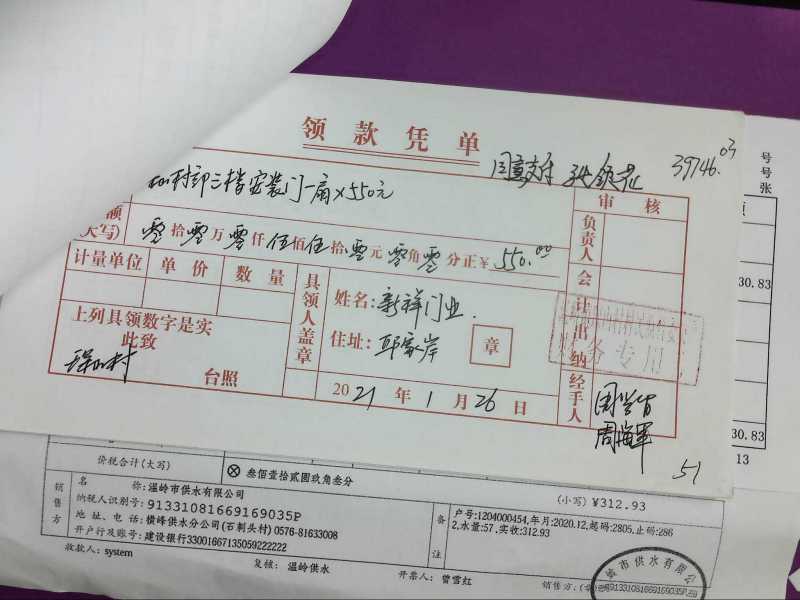 领款凭单
同意支付
39746.03
村部三楼安装门一扇×550元
审核
额
(大写)
零拾零万零仟伍佰伍拾零元零角零分正¥550.00
负责人
计量单位 单价 数量
具领人盖章
姓名:新祥门业.
会计
上列具领数字是实
住址:邱家岸
章
出纳
务专用
此致
村
台照
2021年1月26日
经手人
周海军
51
号
号
张
30.83
30.83
13
价税合计(大写)
⊗叁佰壹拾贰圆玖角叁分
(小写)¥312.93
销售方
名称:温岭市供水有限公司
纳税人识别号:91331081669169035P
地址、电话:横峰供水分公司(石刺头村) 0576-81633008
开户行及账号:建设银行33001667135059222222
备注
户号:1204000454,年月:2020.12,起码:2805.止码:286
2,水量:57,实收:312.93
收款人:system
复核:温岭供水
开票人:曾雪红
销售方:(章)
岭市供水有限公
91331081669169035P